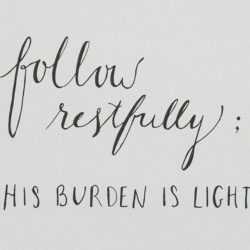 follow
restfully;
HIS BURDEN IS LIGHT